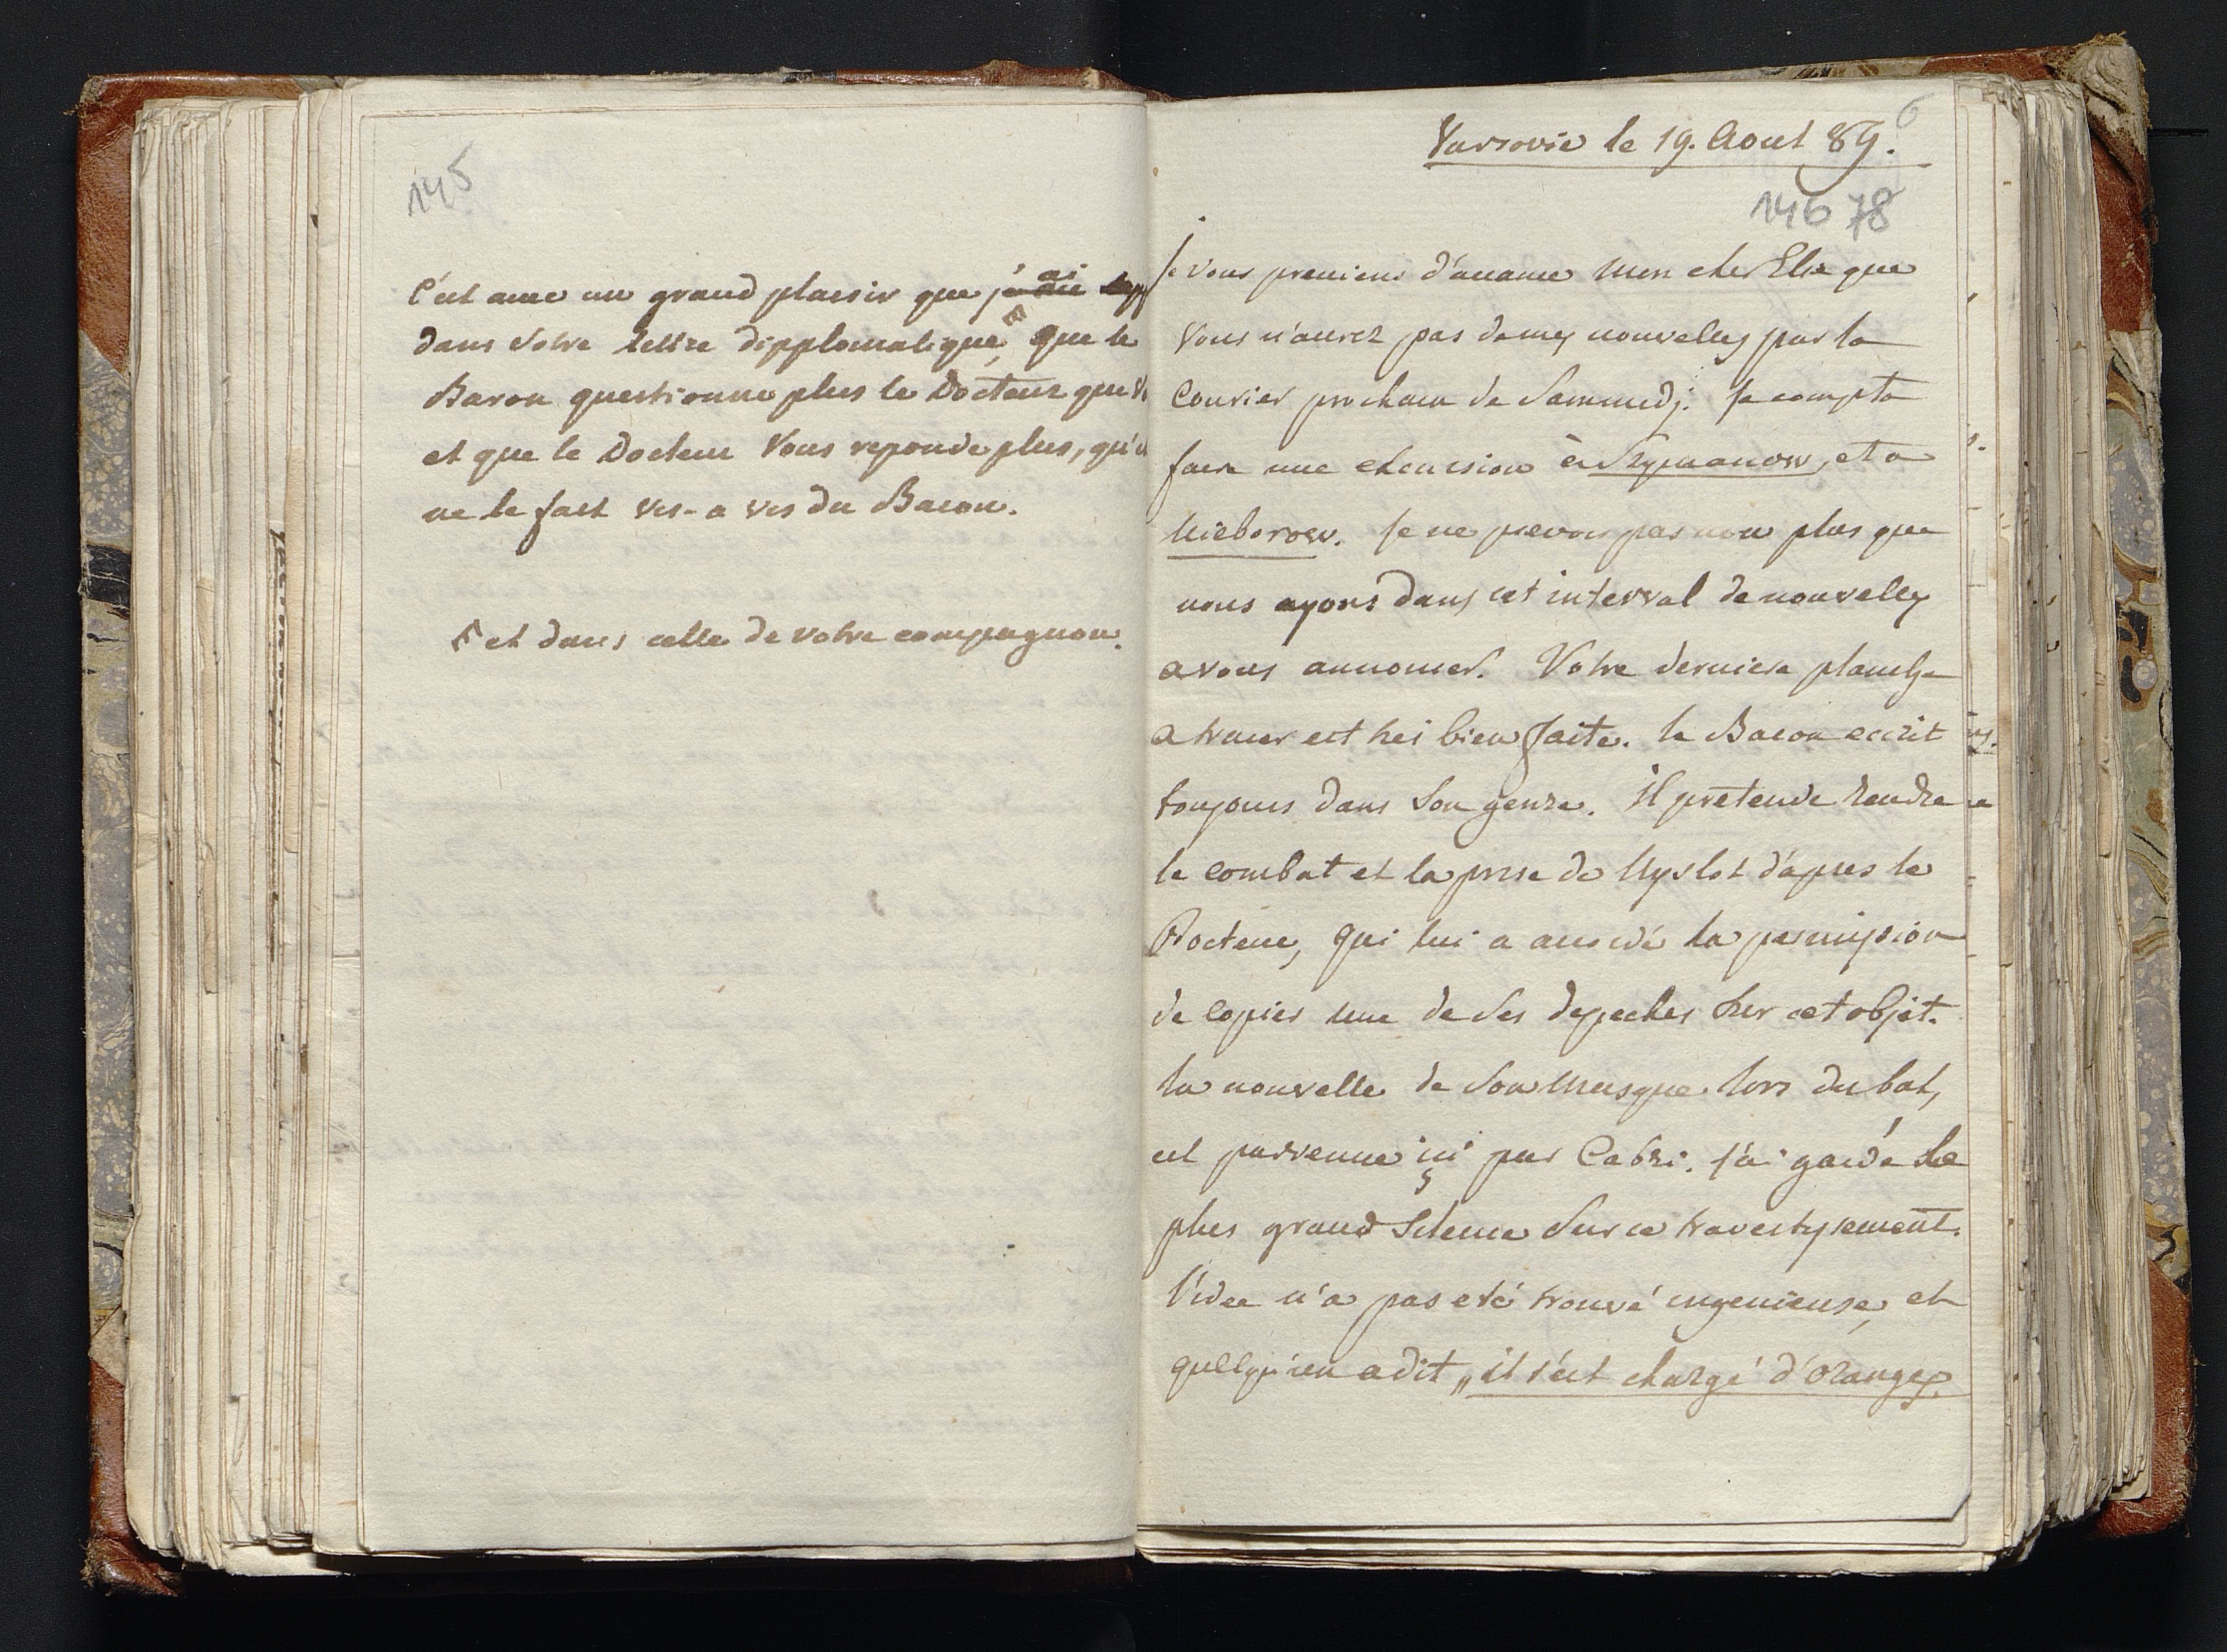 145
C'est avec un grand plaisir que j'ai
dans Votre lettre dipplomatique, que le
Baron questionne plus le Docteur que
et que le Docteur Vous reponde plus, qu'il
ne le fait vis-a vis du Baron.
et dans celle de votre compagnon.
Varsovie le 19. Aout 89.
6
146 78
Je vous previens d'avance mon cher Elie que
Vous n'aurez pas de mes nouvelles par le
Courier prochain de Sammedj. Je compte
faire une excursion à Szymanow, et a
Nieborow. Je ne prevois pas non plus que
nous ayons dans cet interval de nouvelles
a vous annoncer. Votre derniere planche
a tracer est trés bien faite. le Baron ecrit
toujours dans Son genre. Il prétende rendre
le combat et la prise de Nyslot d'apres le
Docteur, qui lui a accordé la permission
de copier une de Ses depeches Sur cet objet.
la nouvelle de Son Masque lors du bal,
est parvenue ici par Cabri. j'ai gardé le
plus grand Silence Sur ce travestissement.
l'idee n'a pas eté trouvé ingenieuse, et
quelqu'un a dit „il s'est chargé d'oranges